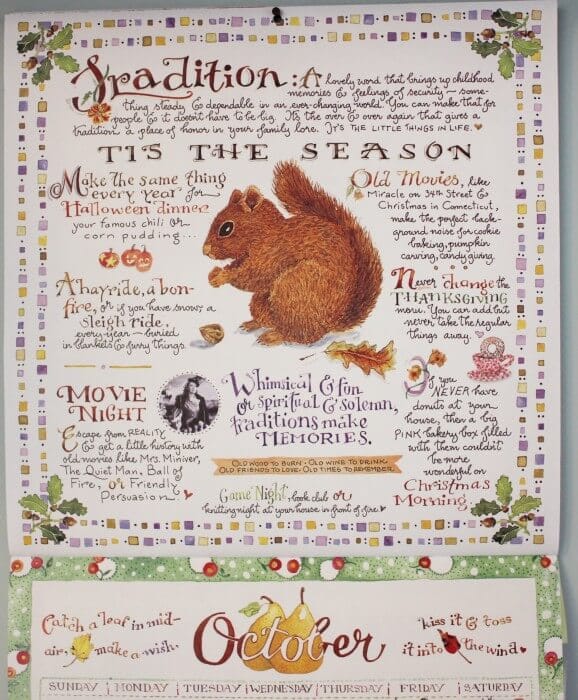 Tradition: A lovely word that brings up childhood
memories & feelings of security – some-
thing steady & dependable in an ever-changing world. You can make that for
people & it doesn't have to be big. It's the over & over again that gives a
tradition a place of honor in your family lore. IT'S THE LITTLE THINGS IN LIFE. ♥
TIS THE SEASON
Make the same thing
every year for
Halloween dinner
your famous chili or
corn pudding...
A hayride, a bon-
fire, or if you have snow, a
sleigh ride,
every year – buried
in blankets & furry things.
Old Movies, like
Miracle on 34th Street &
Christmas in Connecticut,
make the perfect back-
ground noise for cookie
baking, pumpkin
carving, candy giving.
Never change the
THANKSGIVING
menu. You can add but
never take the regular
things away. ♥
MOVIE
NIGHT
Escape from REALITY
& get a little history with
old movies like Mrs. Miniver,
The Quiet Man, Ball of
Fire, or Friendly
Persuasion ♥
Whimsical & fun
or spiritual & solemn,
traditions make
MEMORIES.
OLD WOOD TO BURN • OLD WINE TO DRINK
OLD FRIENDS TO LOVE • OLD TIMES TO REMEMBER
Game Night, book club or
knitting night at your house in front of fire ♥
If you
NEVER have
donuts at your
house, then a big
PINK bakery box filled
with them couldn't
be more
wonderful on
Christmas
Morning.
Catch a leaf in mid-
air, make a wish,
October
kiss it & toss
it into the wind ♥
SUNDAY MONDAY TUESDAY WEDNESDAY THURSDAY FRIDAY SATURDAY